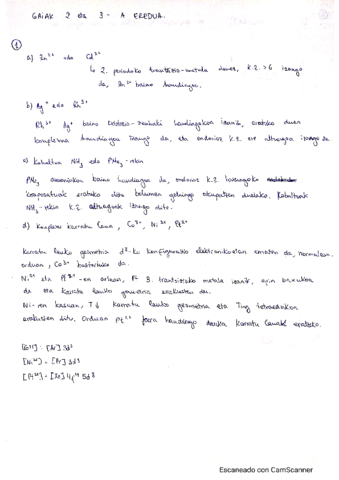 GAIAK 2 eta 3 - A EREDUA.
①
a) Zn²⁺ edo Cd²⁺
↳ 2. periodoko trantsizio-metala denez, K.Z. > 6 izango
da, Zn²⁺ baino handiagoa.
b) Ag⁺ edo Rh³⁺
Rh³⁺ Ag⁺ baino oxidazio-zenbaki handiagokoa izanik, eratuko duen
konplexua handiagoa izango da, eta ondorioz K.Z. ere altuagoa izango da.
c) Kobaltua NH₃ edo PMe₃-rekin
PMe₃ amoniakoa baino handiagoa da, ondorioz K.Z. txikiagoko
konposatuak eratuko ditu bolumen gehiago okupatzen duelako. Kobaltuak
NH₃-rekin K.Z. altuagoak izango ditu.
d) Konplexu karratu laua, Co³⁺, Ni²⁺, Pt²⁺
Karratu lauko geometria d⁸-ko konfigurazio elektronikoetan ematen da, normalean.
orduan, Co³⁺ baztertuko da.
Ni²⁺ eta Pt²⁺-en artean, Pt 3. trantsizioko metala izanik,
da eta karratu lauko geometria erakusten du.
Ni-ren kasuan, T↓ karratu lauko geometria eta T↑ tetraedrikoa
erakusten ditu. Orduan Pt²⁺ joera handiago dauka karratu lauak eratzeko.
[Co³⁺]: [Ar] 3d⁶
[Ni²⁺] = [Ar] 3d⁸
[Pt²⁺] = [Xe] 4f¹⁴ 5d⁸
Escaneado con CamScanner